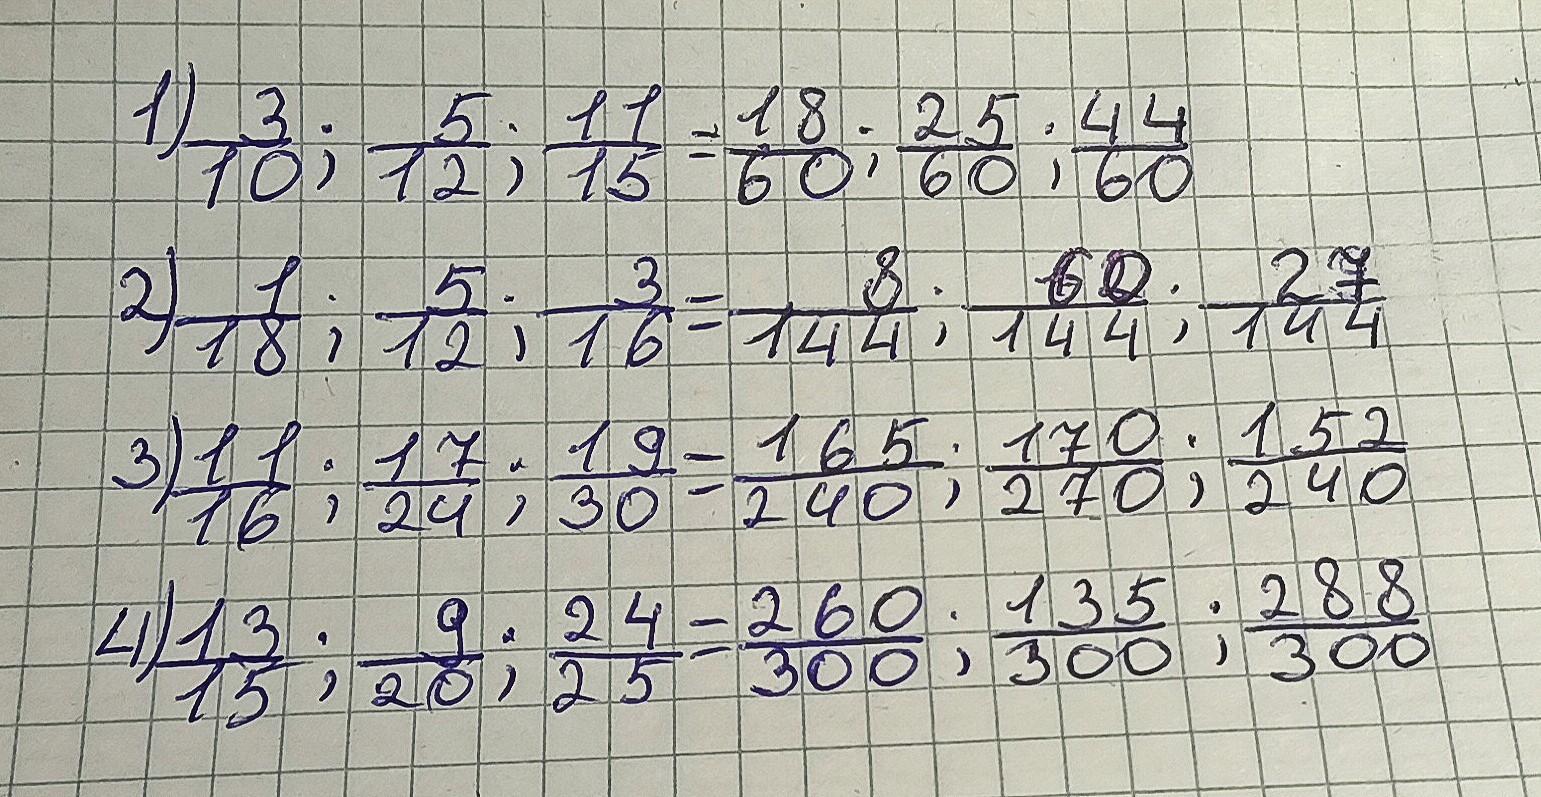 1) 3/10; 5/12; 11/15 = 18/60; 25/60; 44/60
2) 1/18; 5/12; 3/16 = 8/144; 60/144; 27/144
3) 11/16; 17/24; 19/30 = 165/240; 170/270; 152/240
4) 13/15; 9/20; 24/25 = 260/300; 135/300; 288/300